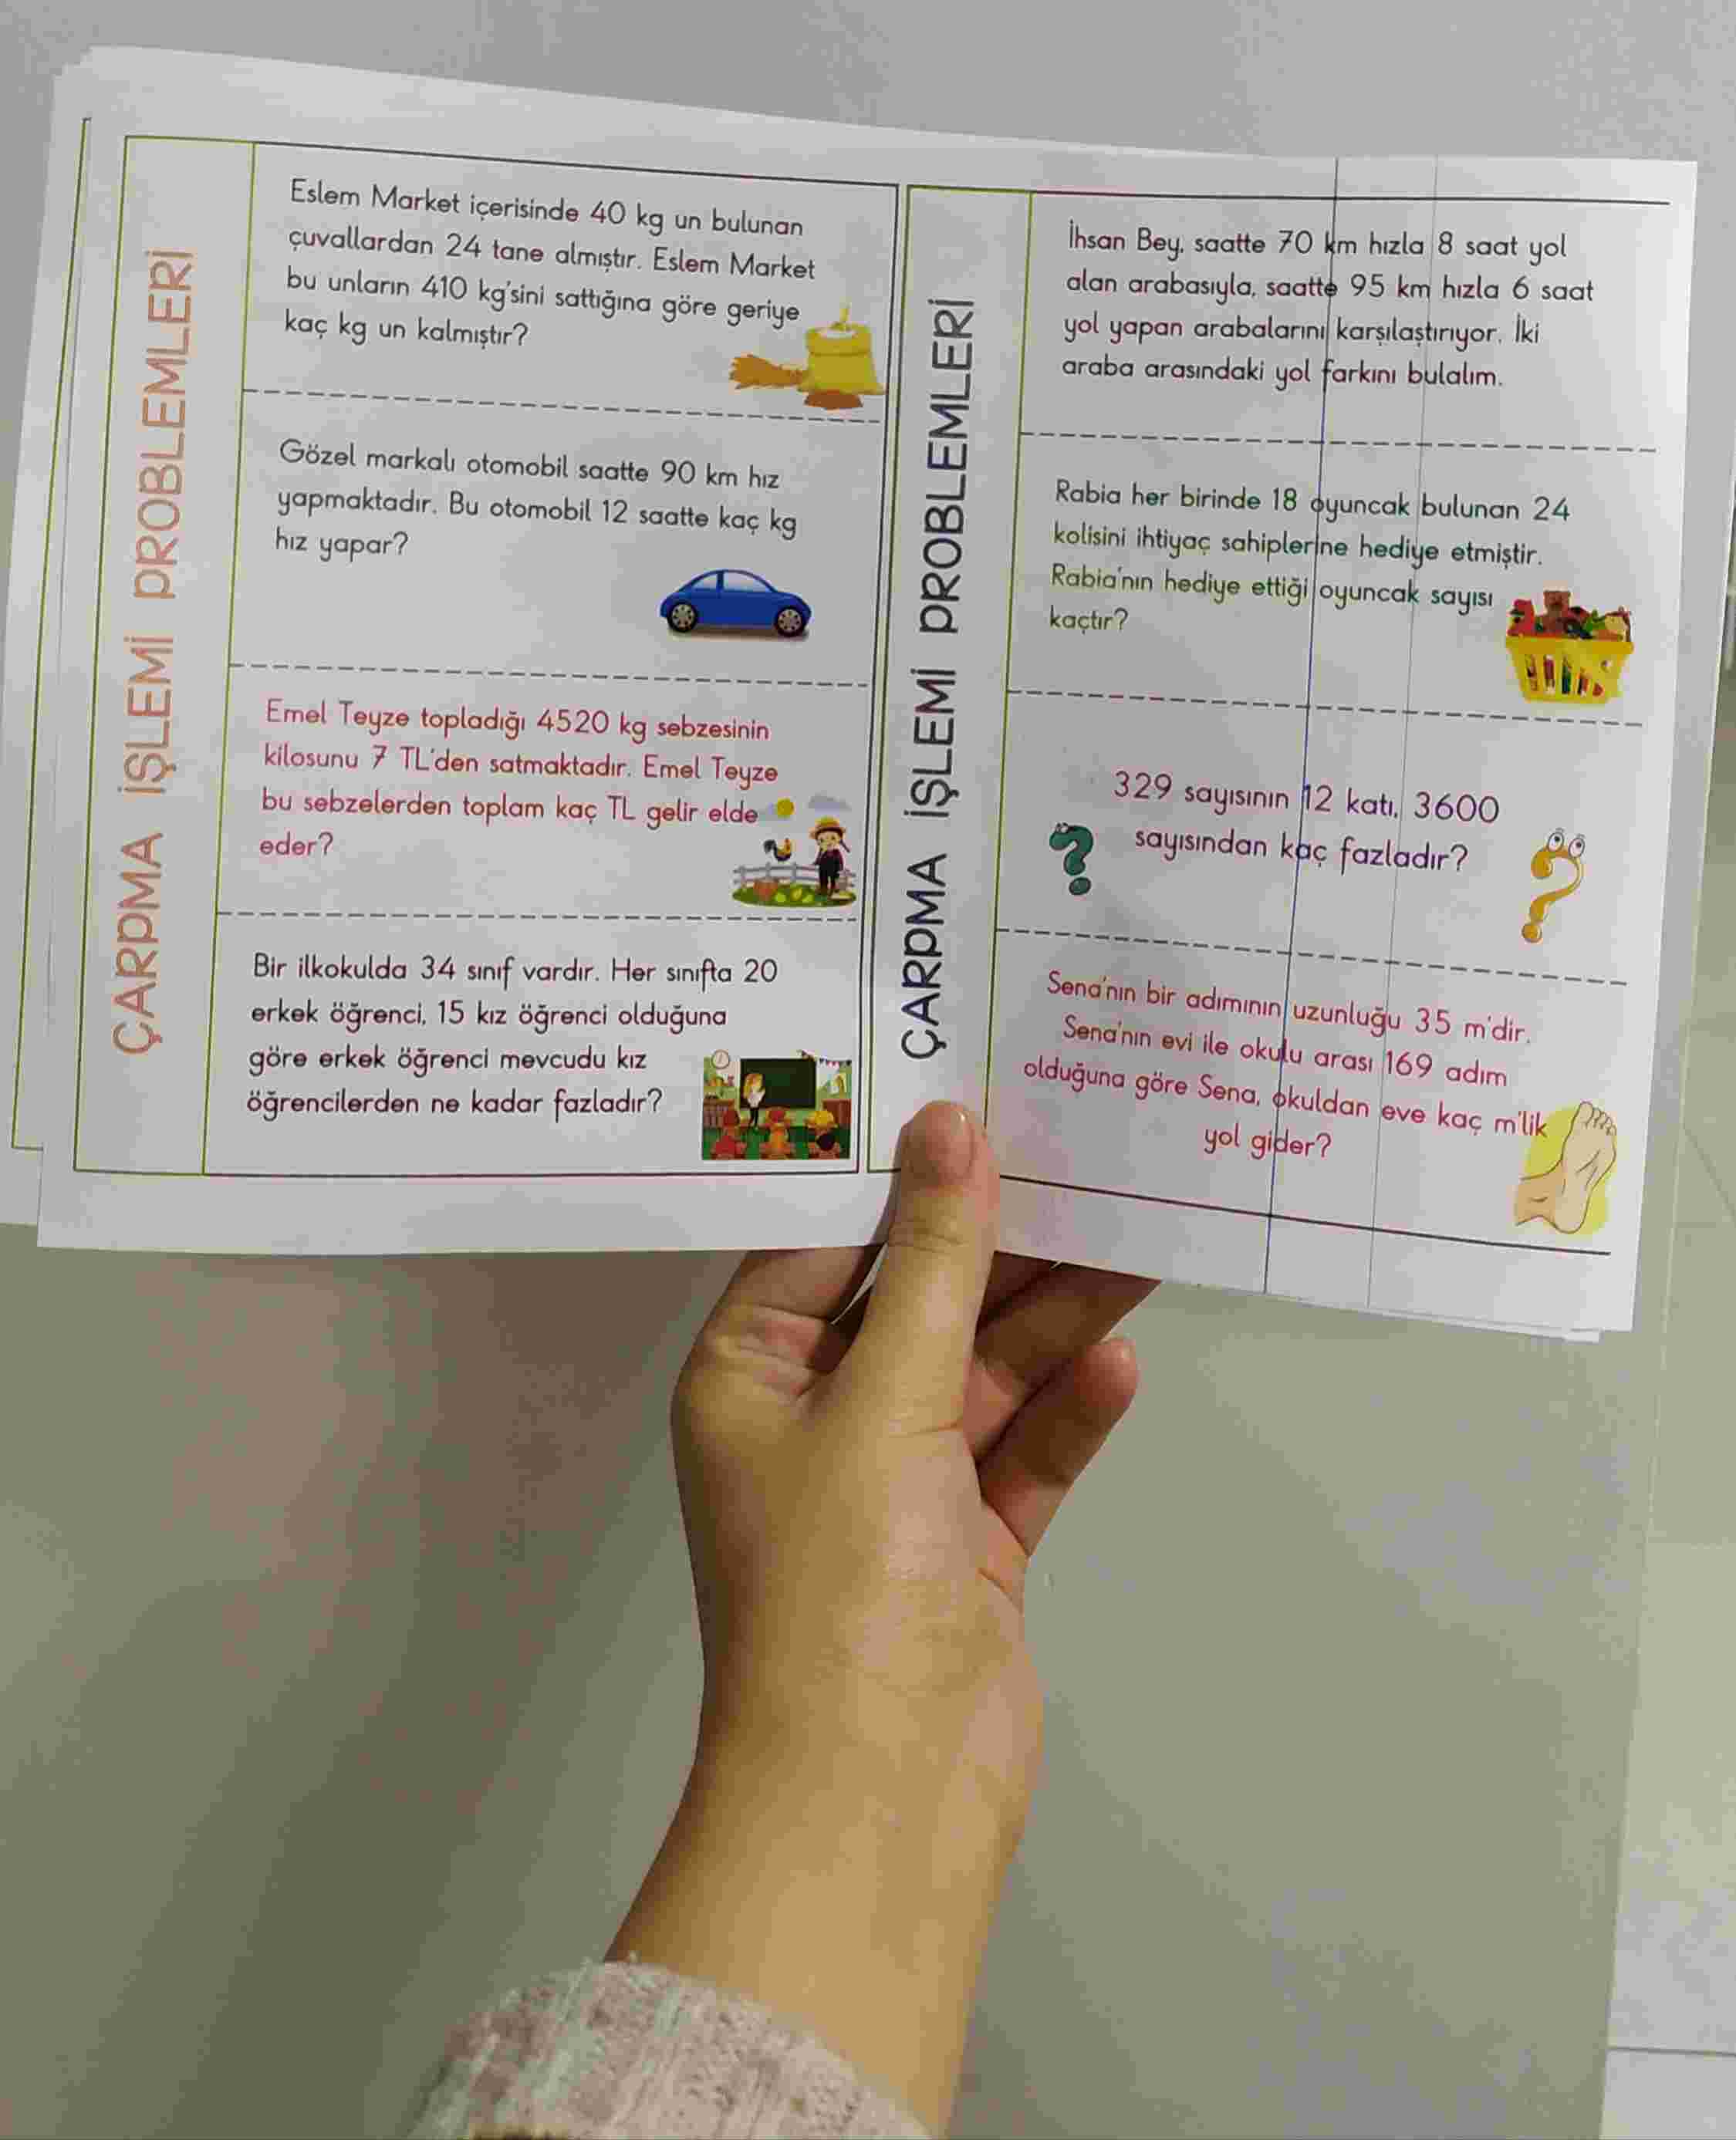 ÇARPMA İŞLEMİ PROBLEMLERİ
Eslem Market içerisinde 40 kg un bulunan
çuvallardan 24 tane almıştır. Eslem Market
bu unların 410 kg'sini sattığına göre geriye
kaç kg un kalmıştır?
Gözel markalı otomobil saatte 90 km hız
yapmaktadır. Bu otomobil 12 saatte kaç kg
hız yapar?
Emel Teyze topladığı 4520 kg sebzesinin
kilosunu 7 TL'den satmaktadır. Emel Teyze
bu sebzelerden toplam kaç TL gelir elde
eder?
Bir ilkokulda 34 sınıf vardır. Her sınıfta 20
erkek öğrenci, 15 kız öğrenci olduğuna
göre erkek öğrenci mevcudu kız
öğrencilerden ne kadar fazladır?
ÇARPMA İŞLEMİ PROBLEMLERİ
İhsan Bey, saatte 70 km hızla 8 saat yol
alan arabasıyla, saatte 95 km hızla 6 saat
yol yapan arabalarını karşılaştırıyor. İki
araba arasındaki yol farkını bulalım.
Rabia her birinde 18 oyuncak bulunan 24
kolisini ihtiyaç sahiplerine hediye etmiştir.
Rabia'nın hediye ettiği oyuncak sayısı
kaçtır?
329 sayısının 12 katı, 3600
sayısından kaç fazladır?
Sena'nın bir adımının uzunluğu 35 m'dir.
Sena'nın evi ile okulu arası 169 adım
olduğuna göre Sena, okuldan eve kaç m'lik
yol gider?